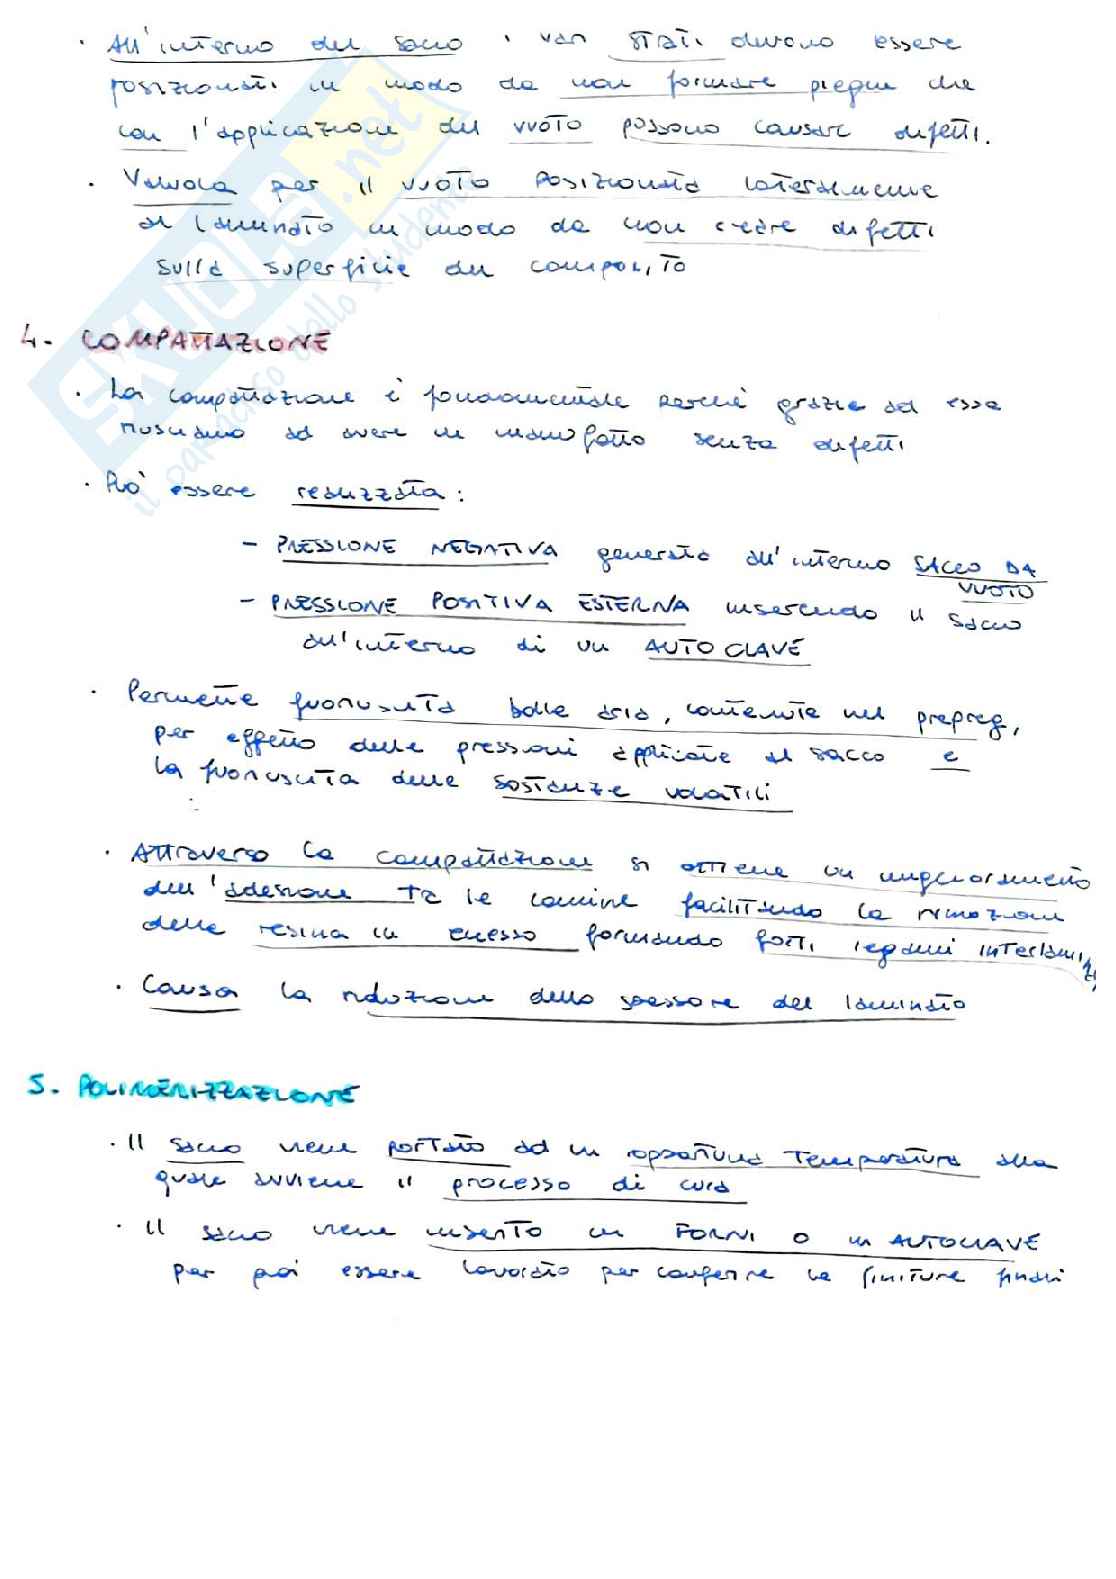 · All'interno del sacco i vari strati devono essere
posizionati in modo da non formare pieghe che
con l'applicazione del vuoto possono causare difetti.
· Valvola per il vuoto posizionata lateralmente
al laminato in modo da non creare difetti
sulla superficie del composito
4. COMPATTAZIONE
· La compattazione è fondamentale perché grazie ad essa
riusciamo ad avere un manufatto senza difetti
· Può essere realizzata:
- PRESSIONE NEGATIVA generata all'interno SACCO DA
VUOTO
- PRESSIONE POSITIVA ESTERNA inserendo il sacco
all'interno di un AUTOCLAVE
· Permette fuoriuscita bolle aria, contenute nel prepreg,
per effetto delle pressioni applicate al sacco e
la fuoriuscita delle sostanze volatili
· Attraverso la compattazione si ottiene un miglioramento
dell'adesione tra le lamine facilitando la rimozione
della resina in eccesso formando forti legami interlaminari
· Causa la riduzione dello spessore del laminato
5. POLIMERIZZAZIONE
· Il sacco viene portato ad un opportuna temperatura alla
quale avviene il processo di cura
· Il sacco viene inserito in FORNI o in AUTOCLAVE
per poi essere lavorato per conferire le finiture finali
SKUOLA.net
il paradiso dello studente